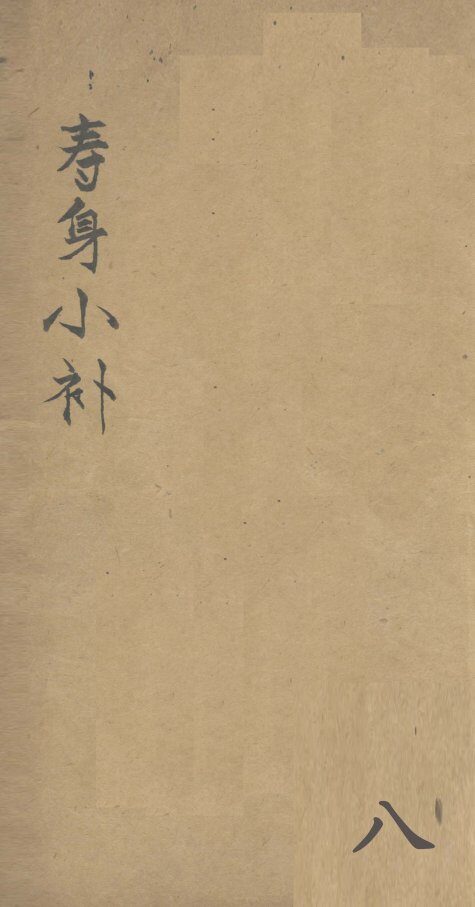 寿身小补
八